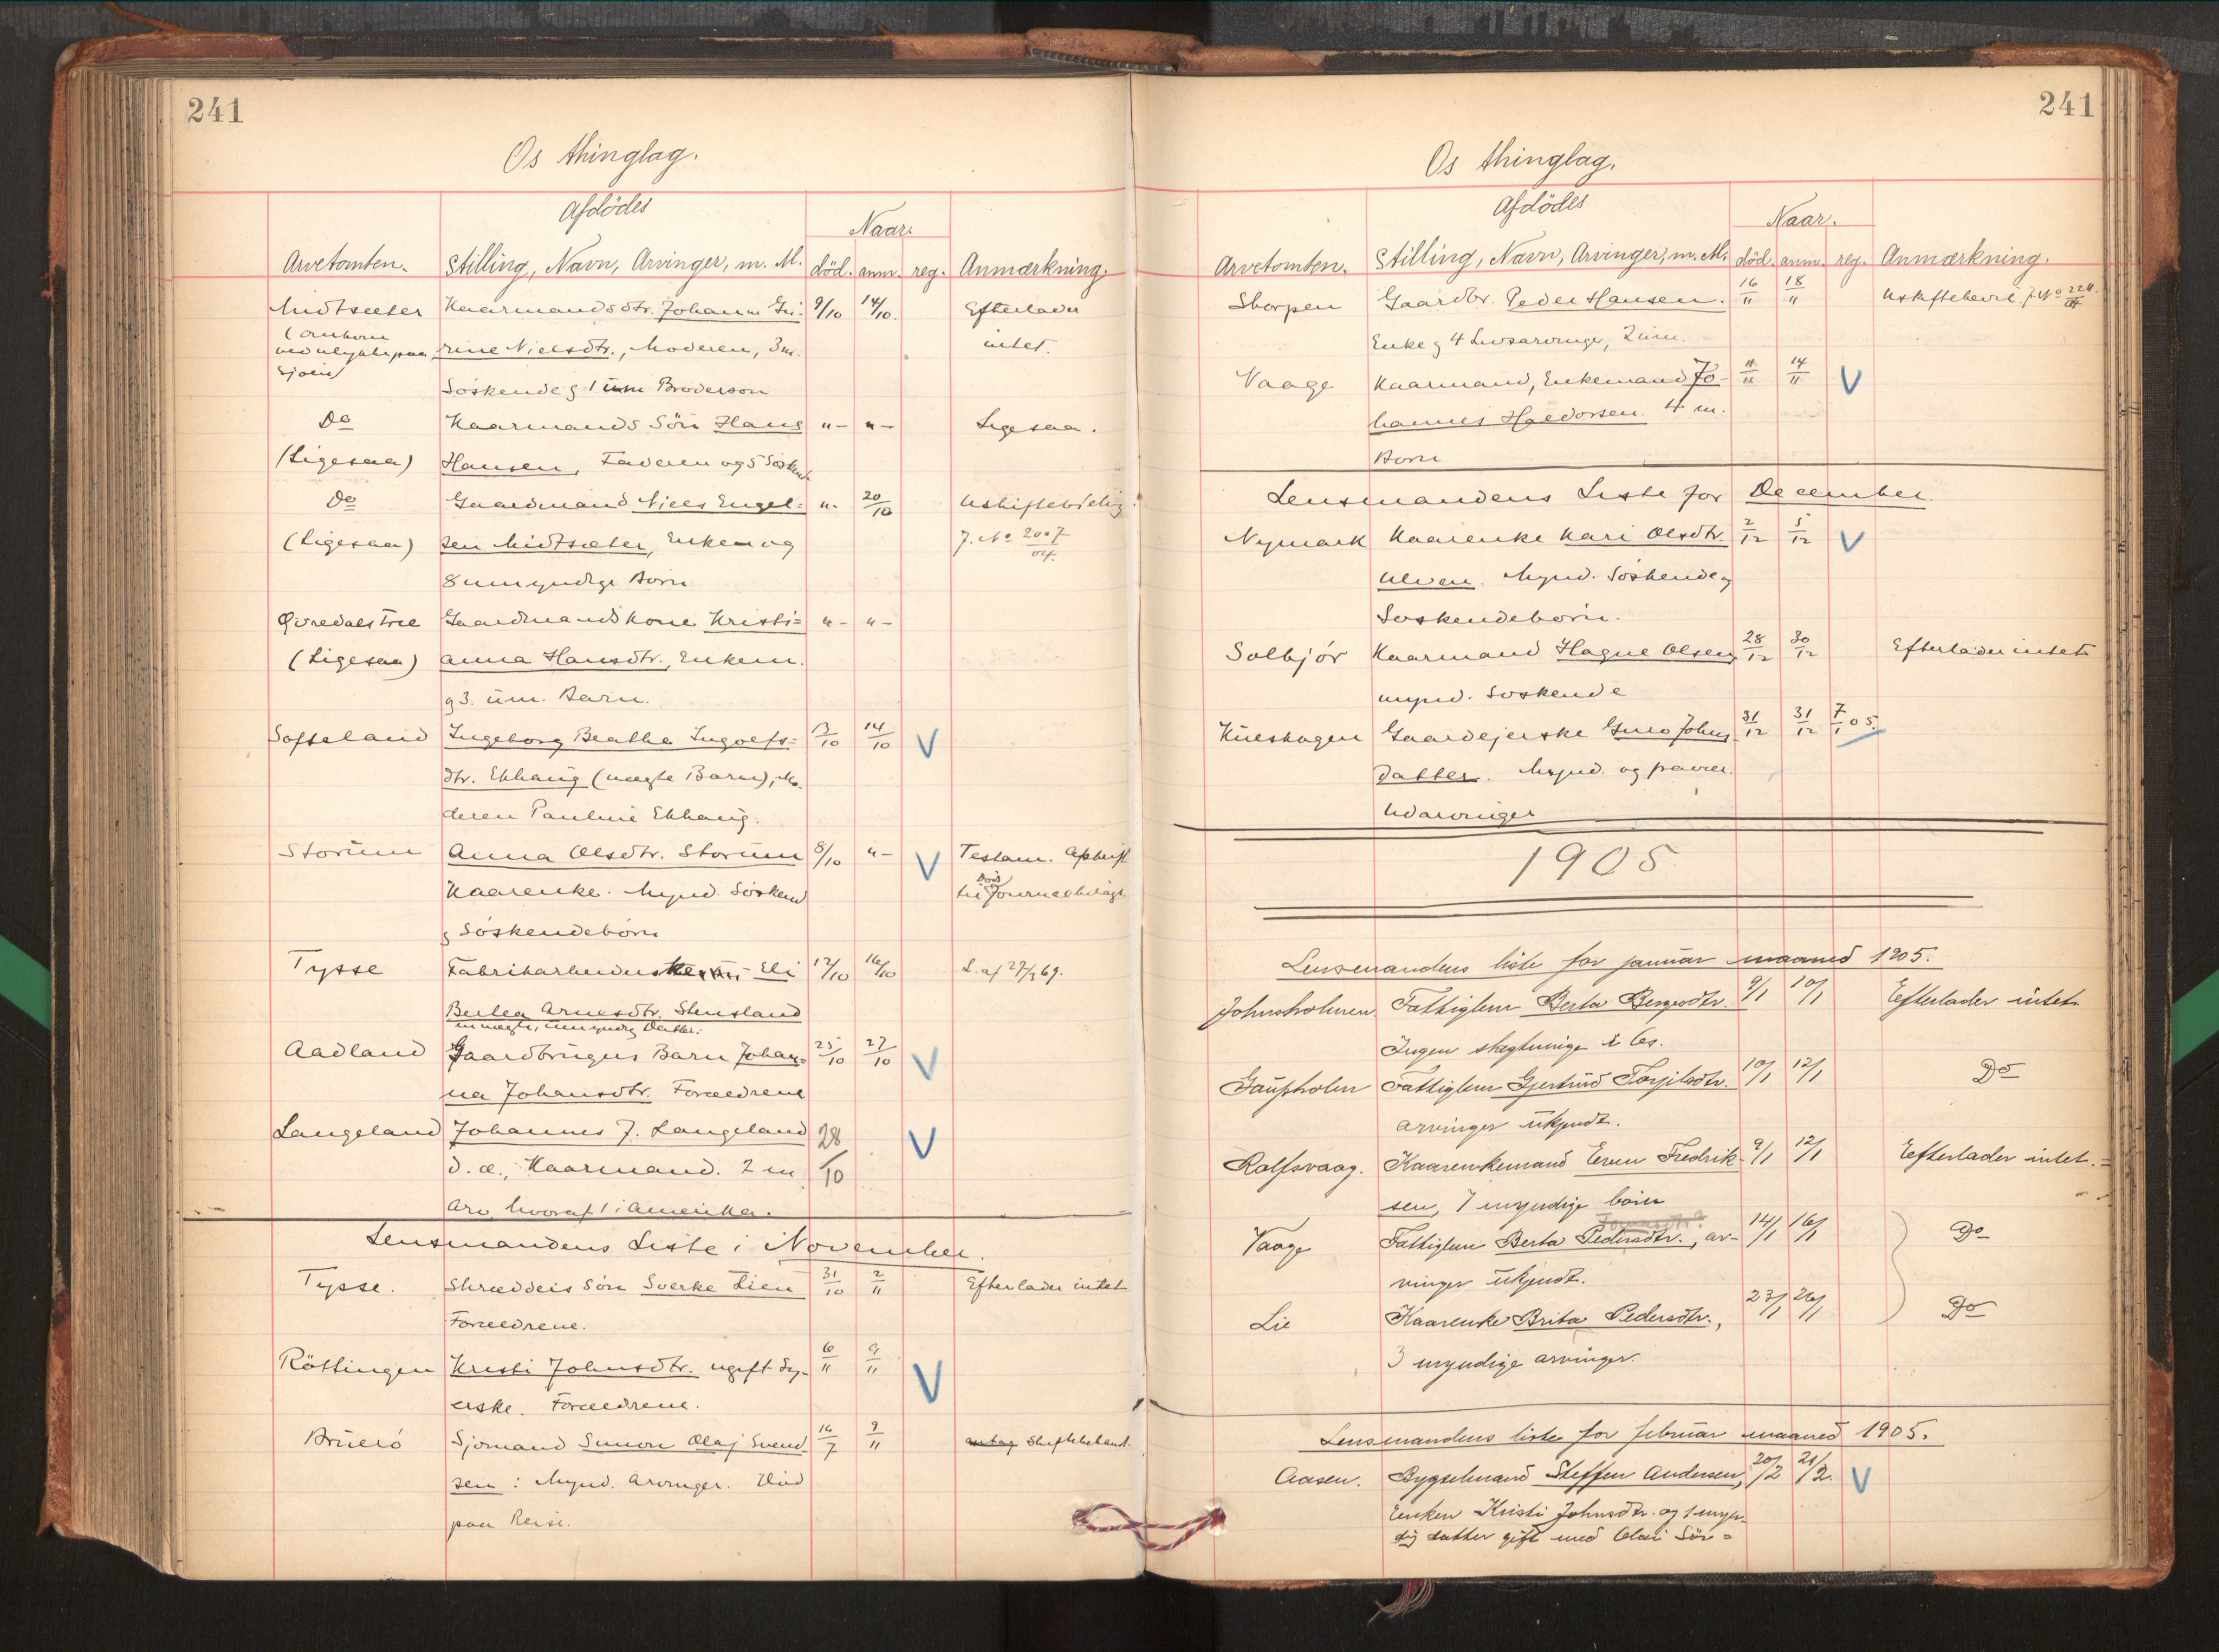 241
Os thinglag.
Afdödes
Naar.
Arvetomten. Stilling, Navn, Arvinger, m. M. död. anm. reg. Anmærkning.
Midtsæter Kaarmands dtr. Johanne Gu- 9/10 14/10. Efterlader
(omkom
ved ulykke paa rine Nielsdtr., Moderen, 3 m. intet.
Sjöen)
Söskende g 1 um Brodersön
Do Kaarmands Sön Hans " - " - Ligesaa.
(Ligesaa) Hansen, Faderen og 5 Söskende
Do Gaardmand Niels Engel- " - 20/10 Uskiftebevilg.
(Ligesaa) sen Midtsæter, Enken og J. No 2007/04.
8 umyndige Börn
Qvredalstræ Gaardmandskone Kristi= " - " -
(Ligesaa) anna Hansdtr., Enkem.
g 3. um. Barn.
Softeland Ingeborg Beathe Ingolfs= 13/10 14/10 V
dtr. Ekhaug (uægte Barn), Mo-
deren Pauline Ekhaug.
Storum Anna Olsdtr. Storum 8/10 " - V Testam. Afskrift
Kaarenke. Mynd. Söskend til Journalbilag
g Söskendebörn
Tysse Fabrikarbeider Eli 12/10 16/10 L. af 27/3 69.
Berthea Arnesdtr. Stensland
en uægte, umyndig Datter.
Aadland Gaardbrugers Barn Johan= 25/10 27/10 V
na Johansdtr. Forældrene
Langeland Johannes J. Langeland 28/10 V
d. æ., Kaarmand. 2 m
Arv. hvoraf 1 i Amerika.
Lensmandens Liste i November.
Tysse. Skrædders Sön Sverke Lien 31/10 2/11 Efterlader intet
Forældrene.
Röttingen Kristi Johnsdtr. ugift Sy- 6/11 9/11 V
erske. Forældrene.
Bruerö Sjömand Simon Olaj Svend- 16/7 9/11 Skiftebehand.
sen: Mynd. Arvinger. Död
paa Reise.
241
Os thinglag.
Afdödes
Naar.
Arvetomten. Stilling, Navn, Arvinger, m. M. död. anm. reg. Anmærkning.
Skorpen Gaardbr. Peder Hansen. 16/11 18/11 Uskiftebevil. J. No 2211/04
Enke g 4 Livsarvinger, 2 um.
Vaage Kaarmand, Enkemand Jo- 11/11 14/11 V
hannes Haldorsen 4 m.
Börn
Lensmandens Liste for December.
Nymark Kaarenke Kari Olsdtr. 2/12 5/12 V
Ulven. Mynd. Söskende g
Söskendebörn.
Solbjör Kaarmand Hagne Olsen 28/12 30/12 Efterlader intet
mynd. Söskende
Kuleshagen Gaardejerske Guro Johns 31/12 31/12 7/1 05.
datter. Mynd. og fravær.
Udarvinger
1905
Lensmandens liste for januar maaned 1905.
Johnsholmen. Fattiglem Berta Bergesdtr. 9/1 10/1 Efterlader intet
Ingen slægtninge i Os.
Gaupholm Fattiglem Gjertrud Torjilsdtr. 10/1 12/1 Do
arvinger ukjendt.
Rolfsvaag. Kaarenkemand Eren Fredrik- 9/1 12/1 Efterlader intet.=
sen, 7 myndige börn
Tomasdtr?
Vaage Fattiglem Berta Pedersdtr., ar- 14/1 16/1 Do
vinger ukjendt.
Lie Kaarenke Brita Pedersdtr., 23/1 26/1 Do
3 myndige arvinger.
Lensmandens liste for februar maaned 1905.
Aasen. Bygselmand Steffen Andersen, 20/2 21/2. V
Enken Kristi Johnsdtr. og 1 myn-
dig datter gift med Olai Sör=